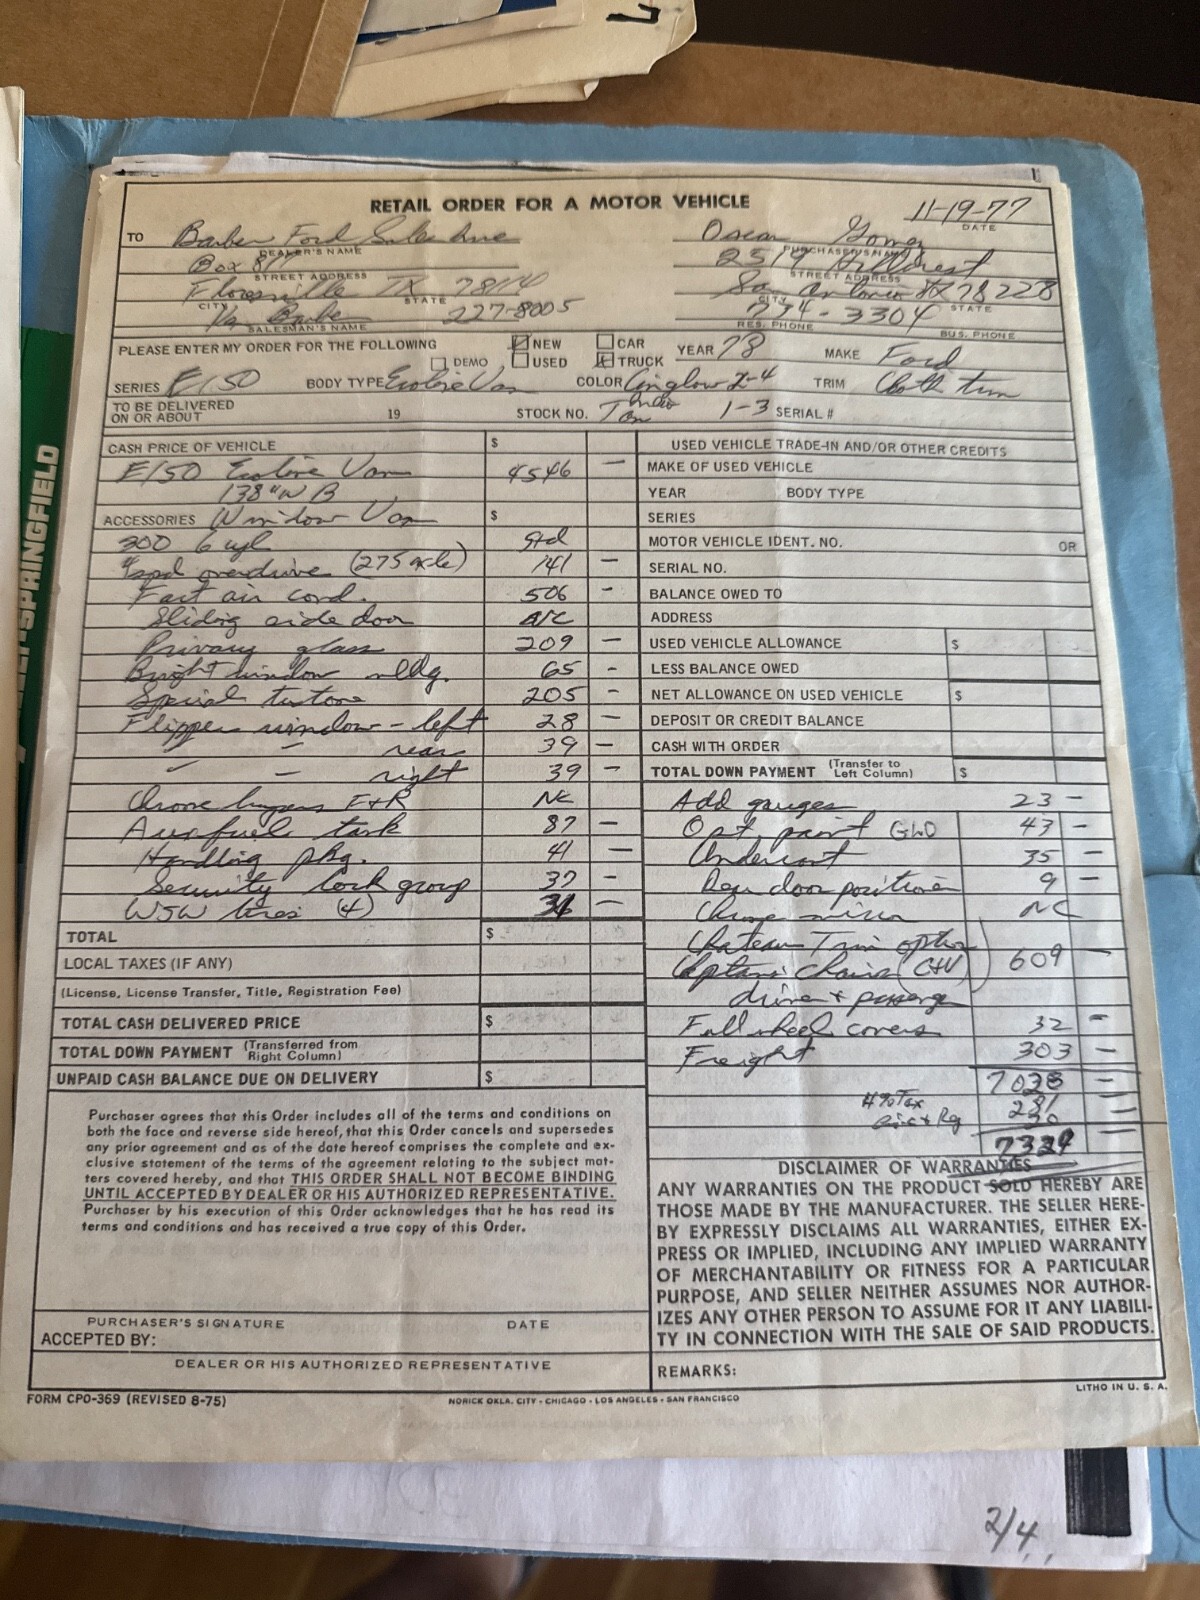 RETAIL ORDER FOR A MOTOR VEHICLE
11-19-77
DATE
TO Barber Ford Sales Inc
DEALER'S NAME
Oscar Gomez
PURCHASER'S NAME
Box 817
STREET ADDRESS
2519 Hillcrest
STREET ADDRESS
Floresville TX 78114
CITY STATE
San Antonio TX 78228
CITY STATE
Barber 227-8005
SALESMAN'S NAME
734-3304
RES. PHONE BUS. PHONE
PLEASE ENTER MY ORDER FOR THE FOLLOWING
NEW CAR YEAR 78 MAKE Ford
DEMO USED TRUCK
SERIES E150 BODY TYPE Econoline Van COLOR 2-4 TRIM Cloth trim
TO BE DELIVERED
ON OR ABOUT 19 STOCK NO. Tan 1-3 SERIAL #
CASH PRICE OF VEHICLE $
E150 Econoline Van 4546 —
138" WB
ACCESSORIES Window Van $
300 6 cyl Std
4 spd overdrive (275 axle) 141 —
Fact air cond. 506 -
Sliding side door N/C
Privacy glass 209 —
Bright window mldg. 65 -
Special tutone 205 —
Flipper window - left 28 —
" - rear 39 —
" - right 39 —
Chrome bumpers F+R NC
Aux fuel tank 87 —
Handling pkg. 41 —
Security lock group 37 -
WSW tires (4) 36 —
TOTAL $
LOCAL TAXES (IF ANY)
(License, License Transfer, Title, Registration Fee)
TOTAL CASH DELIVERED PRICE $
TOTAL DOWN PAYMENT (Transferred from Right Column)
UNPAID CASH BALANCE DUE ON DELIVERY $
Purchaser agrees that this Order includes all of the terms and conditions on
both the face and reverse side hereof, that this Order cancels and supersedes
any prior agreement and as of the date hereof comprises the complete and ex-
clusive statement of the terms of the agreement relating to the subject mat-
ters covered hereby, and that THIS ORDER SHALL NOT BECOME BINDING
UNTIL ACCEPTED BY DEALER OR HIS AUTHORIZED REPRESENTATIVE.
Purchaser by his execution of this Order acknowledges that he has read its
terms and conditions and has received a true copy of this Order.
PURCHASER'S SIGNATURE DATE
ACCEPTED BY:
DEALER OR HIS AUTHORIZED REPRESENTATIVE
USED VEHICLE TRADE-IN AND/OR OTHER CREDITS
MAKE OF USED VEHICLE
YEAR BODY TYPE
SERIES
MOTOR VEHICLE IDENT. NO. OR
SERIAL NO.
BALANCE OWED TO
ADDRESS
USED VEHICLE ALLOWANCE $
LESS BALANCE OWED
NET ALLOWANCE ON USED VEHICLE $
DEPOSIT OR CREDIT BALANCE
CASH WITH ORDER
TOTAL DOWN PAYMENT (Transfer to Left Column) $
Add gauges 23 —
Opt. paint GLO 43 —
Undercoat 35 —
Rear door positioner 9 —
Chrome mirror NC
Chateau Trim option
Captains chairs (C+V) 609 —
driver + passenger
Full wheel covers 32 -
Freight 303 —
7028 —
4% Tax 281 —
Lic + Rg 20 —
7329 —
DISCLAIMER OF WARRANTIES
ANY WARRANTIES ON THE PRODUCT SOLD HEREBY ARE
THOSE MADE BY THE MANUFACTURER. THE SELLER HERE-
BY EXPRESSLY DISCLAIMS ALL WARRANTIES, EITHER EX-
PRESS OR IMPLIED, INCLUDING ANY IMPLIED WARRANTY
OF MERCHANTABILITY OR FITNESS FOR A PARTICULAR
PURPOSE, AND SELLER NEITHER ASSUMES NOR AUTHOR-
IZES ANY OTHER PERSON TO ASSUME FOR IT ANY LIABILI-
TY IN CONNECTION WITH THE SALE OF SAID PRODUCTS.
REMARKS:
FORM CPO-369 (REVISED 8-75)
NORICK OKLA. CITY - CHICAGO - LOS ANGELES - SAN FRANCISCO
LITHO IN U. S. A.
2/4
-SPRINGFIELD